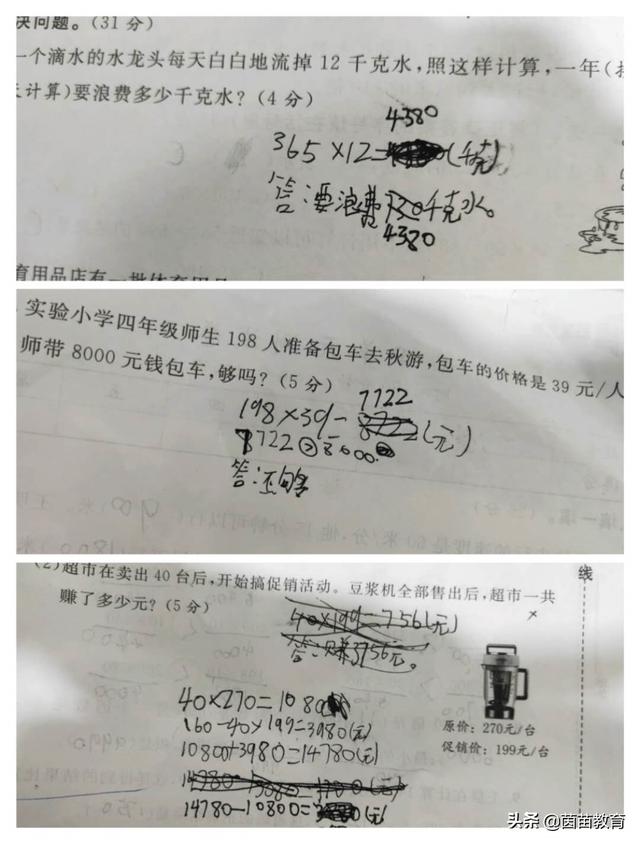 决问题。(31 分)
一个滴水的水龙头每天白白地流掉 12 千克水，照这样计算，一年(按
天计算)要浪费多少千克水？(4 分)
4380
365 ×12= (千克)
答:要浪费 千克水。
4380
育用品店有一批体育用品
实验小学四年级师生 198 人准备包车去秋游，包车的价格是 39 元/人
师带 8000 元钱包车，够吗？(5 分)
7722
198×39= (元)
7722 8000
答:还够
线
(2)超市在卖出 40 台后，开始搞促销活动。豆浆机全部售出后，超市一共
赚了多少元？(5 分)
40×199=756(元)
答:赚3756元。
40×270=1080
160-40×199=3980(元)
10800+3980=14780(元)
14780-10800= (元)
原价：270元/台
促销价：199元/台
头条 @茵茵教育